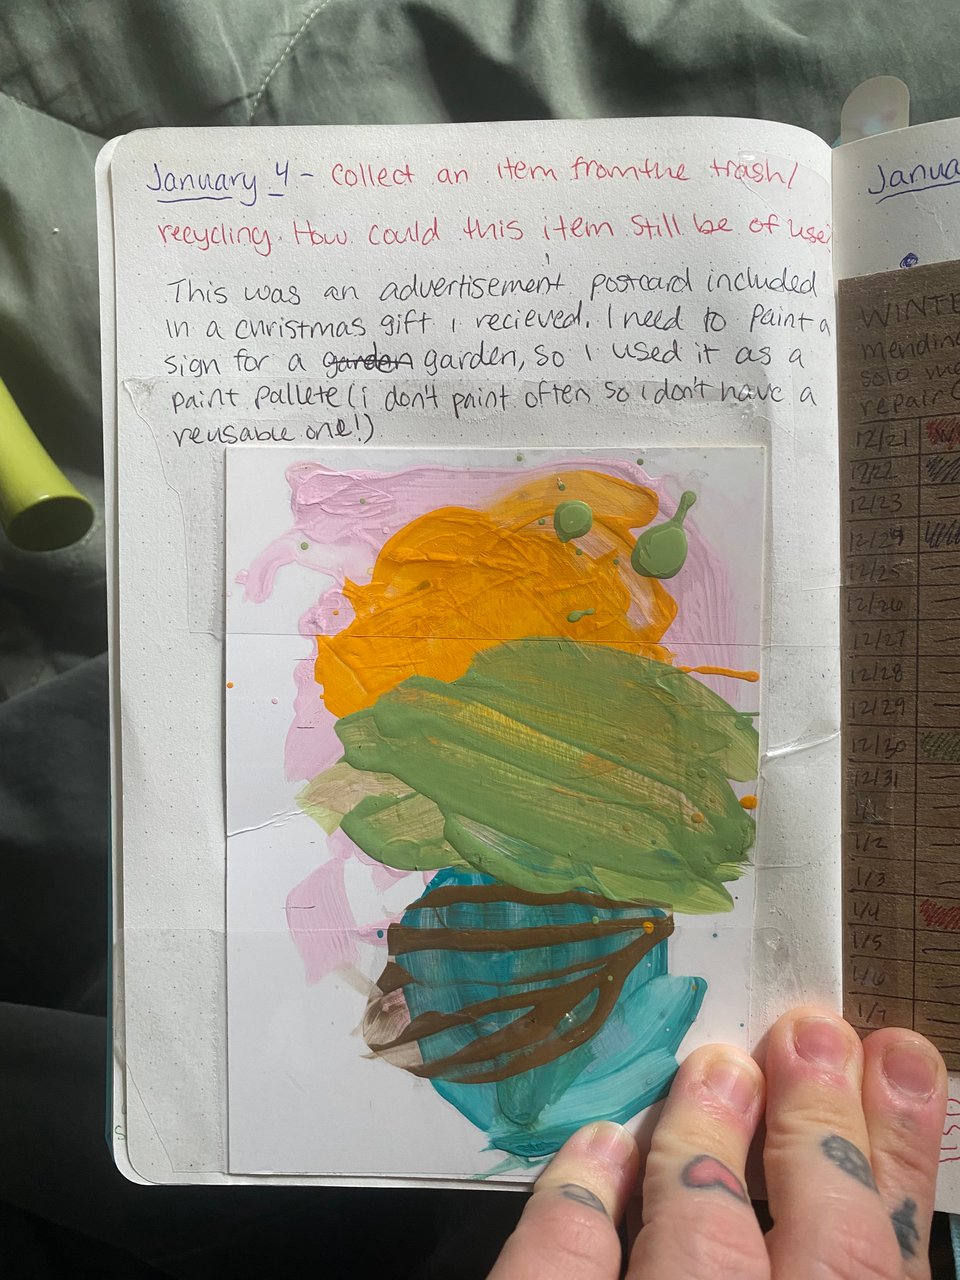 January 4 - Collect an item from the trash/
recycling. How could this item still be of use?
This was an advertisement postcard included
in a christmas gift i recieved. I need to paint a
sign for a garden garden, so I used it as a
paint pallete (i don't paint often so i don't have a
reusable one!)
Janua
WINTE
mending
solo me
repair
12/21
12/22
12/23
12/24
12/25
12/26
12/27
12/28
12/29
12/30
12/31
1/1
1/2
1/3
1/4
1/5
1/6
1/7